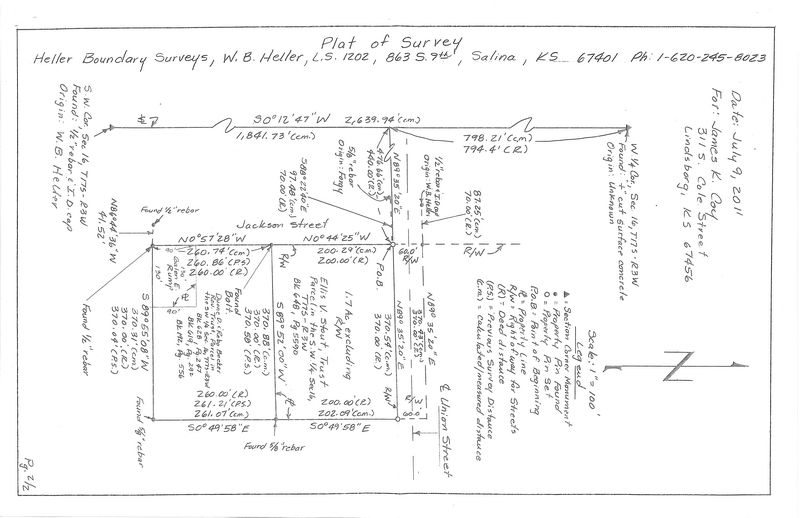 Plat of Survey
Heller Boundary Surveys, W. B. Heller, L.S. 1202, 863 S. 9th, Salina, KS 67401 Ph: 1-620-245-8023
Date: July 9, 2011
For: James K. Coy
311 S. Cole Street
Lindsborg, KS 67456
S0°12'47"W 2,639.94'(cm)
1,841.73'(cm)
798.21'(cm)
794.4'(R)
S.W. Cor. Sec. 16, T17S-R3W
Found: 1/2" rebar & I.D. cap
Origin: W. B. Heller
W 1/4 Cor., Sec. 16, T17S-R3W
Found: "+" cut surface concrete
Origin: Unknown
476.66'(cm)
440.00'(R)
N89°35'20"E
5/8" rebar
1/2" rebar & I.D. cap
Origin: W.B. Heller
87.25'(cm)
70.00'(R)
S88°22'40"E
97.48'(cm)
70.00'(R)
41.52'
Found 1/2" rebar
Jackson Street
N0°57'28"W
260.74'(cm)
260.86'(PS)
260.00'(R)
N0°44'25"W
200.29'(cm)
200.00'(R)
R/W
60.0'
R/W
R/W
P.O.B.
S89°55'08"W
370.31'(cm)
370.00'(R)
370.04'(PS)
130'
90'
90'
Found
Bolt
370.88'(cm)
370.00'(R)
370.58'(PS)
S89°52'00"W
Ellis V. Stout Trust
Parcel in the S.W 1/4 Sec 16,
T17S-R3W
1.7 Ac. excluding
R/W
370.54'(cm)
370.00'(R)
N89°35'20"E
R/W
370.00'(R)
N89°35'20"E
R/W
60.0'
℄ Union Street
260.00'(R)
261.21'(PS)
261.07'(cm)
S0°49'58"E
200.00'(R)
202.09'(cm)
S0°49'58"E
Found 1/2" rebar
Found 5/8" rebar
Found 5/8" rebar
Scale: 1" = 100'
Legend
▲ = Section Corner Monument
= Property Pin Found
o = Property Pin Set
P.O.B. = Point of Beginning
R/W = Right of way for Streets
= Property Line
(R) = Deed distance
(PS) = Previous Survey Distance
(c.m.) = Calculated/measured distance
N
Pg. 2/2